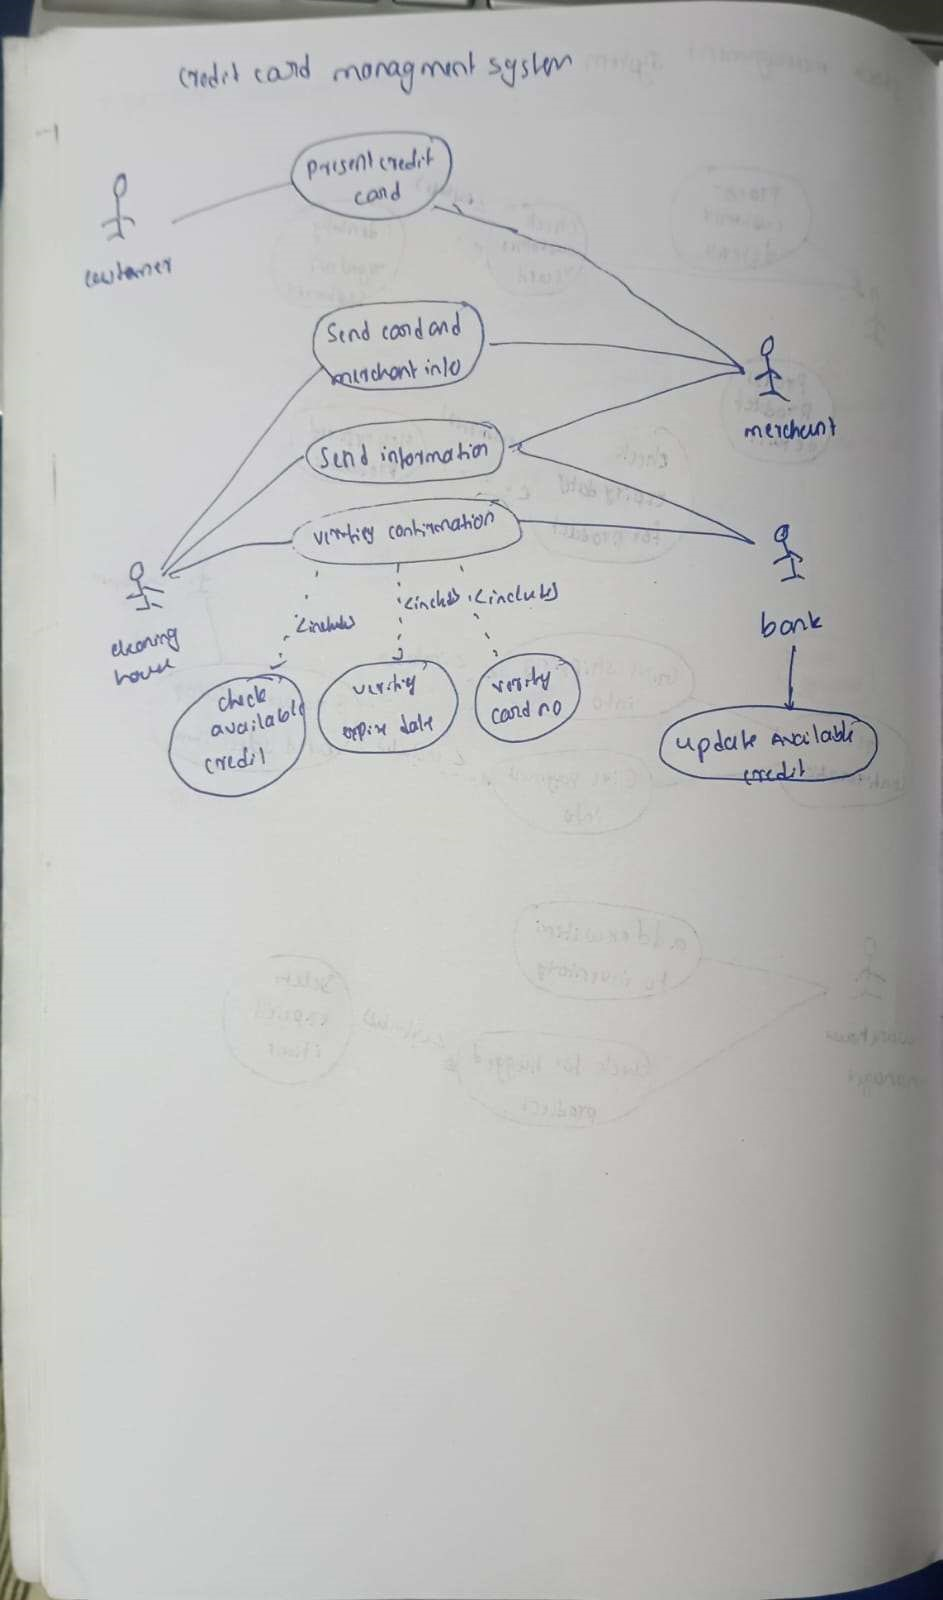 credit card managment system
present credit
card
customer
send card and
merchant info
merchant
send information
verifiy confirmation
bank
clearing
house
<include>
<include>
<include>
check
available
credit
verifiy
expire date
verify
card no
update available
credit